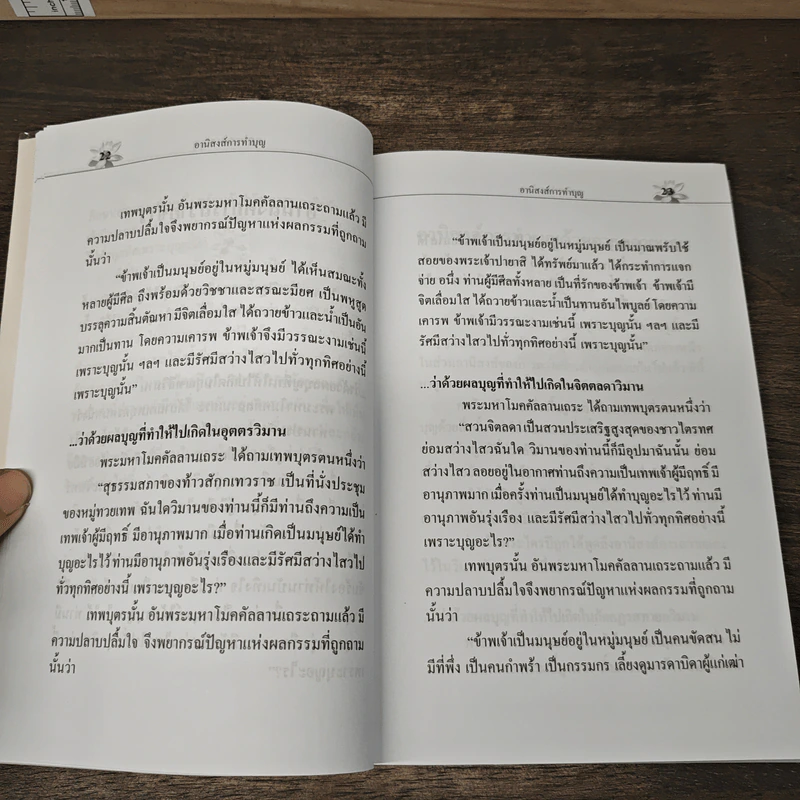 22
อานิสงส์การทำบุญ
เทพบุตรนั้น อันพระมหาโมคคัลลานเถระถามแล้ว มี
ความปลาบปลื้มใจจึงพยากรณ์ปัญหาแห่งผลกรรมที่ถูกถาม
นั้นว่า
“ข้าพเจ้าเป็นมนุษย์อยู่ในหมู่มนุษย์ ได้เห็นสมณะทั้ง
หลายผู้มีศีล ถึงพร้อมด้วยวิชชาและสรณะมียศ เป็นพหูสูต
บรรลุความสิ้นตัณหา มีจิตเลื่อมใส ได้ถวายข้าวและน้ำเป็นอัน
มากเป็นทาน โดยความเคารพ ข้าพเจ้าจึงมีวรรณะงามเช่นนี้
เพราะบุญนั้น ฯลฯ และมีรัศมีสว่างไสวไปทั่วทุกทิศอย่างนี้
เพราะบุญนั้น”
...ว่าด้วยผลบุญที่ทำให้ไปเกิดในอุตตรวิมาน
พระมหาโมคคัลลานเถระ ได้ถามเทพบุตรตนหนึ่งว่า
“สุธรรมสภาของท้าวสักกเทวราช เป็นที่นั่งประชุม
ของหมู่ทวยเทพ ฉันใดวิมานของท่านนี้ก็มีท่านถึงความเป็น
เทพเจ้าผู้มีฤทธิ์ มีอานุภาพมาก เมื่อท่านเกิดเป็นมนุษย์ได้ทำ
บุญอะไรไว้ ท่านมีอานุภาพอันรุ่งเรืองและมีรัศมีสว่างไสวไป
ทั่วทุกทิศอย่างนี้ เพราะบุญอะไร?”
เทพบุตรนั้น อันพระมหาโมคคัลลานเถระถามแล้ว มี
ความปลาบปลื้มใจ จึงพยากรณ์ปัญหาแห่งผลกรรมที่ถูกถาม
นั้นว่า
อานิสงส์การทำบุญ
23
“ข้าพเจ้าเป็นมนุษย์อยู่ในหมู่มนุษย์ เป็นมาณพรับใช้
สอยของพระเจ้าปายาสิ ได้ทรัพย์มาแล้ว ได้กระทำการแจก
จ่าย อนึ่ง ท่านผู้มีศีลทั้งหลาย เป็นที่รักของข้าพเจ้า ข้าพเจ้ามี
จิตเลื่อมใส ได้ถวายข้าวและน้ำเป็นทานอันไพบูลย์ โดยความ
เคารพ ข้าพเจ้ามีวรรณะงามเช่นนี้ เพราะบุญนั้น ฯลฯ และมี
รัศมีสว่างไสวไปทั่วทุกทิศอย่างนี้ เพราะบุญนั้น”
...ว่าด้วยผลบุญที่ทำให้ไปเกิดในจิตตลดาวิมาน
พระมหาโมคคัลลานเถระ ได้ถามเทพบุตรตนหนึ่งว่า
“สวนจิตลดา เป็นสวนประเสริฐสูงสุดของชาวไตรทศ
ย่อมสว่างไสวฉันใด วิมานของท่านนี้ก็มีอุปมาฉันนั้น ย่อม
สว่างไสว ลอยอยู่ในอากาศท่านถึงความเป็นเทพเจ้าผู้มีฤทธิ์ มี
อานุภาพมาก เมื่อครั้งท่านเป็นมนุษย์ได้ทำบุญอะไรไว้ ท่านมี
อานุภาพอันรุ่งเรือง และมีรัศมีสว่างไสวไปทั่วทุกทิศอย่างนี้
เพราะบุญอะไร?”
เทพบุตรนั้น อันพระมหาโมคคัลลานเถระถามแล้ว มี
ความปลาบปลื้มใจ จึงพยากรณ์ปัญหาแห่งผลกรรมที่ถูกถาม
นั้นว่า
“ข้าพเจ้าเป็นมนุษย์อยู่ในหมู่มนุษย์ เป็นคนขัดสน ไม่
มีที่พึ่ง เป็นคนกำพร้า เป็นกรรมกร เลี้ยงดูมารดาบิดาผู้แก่เฒ่า